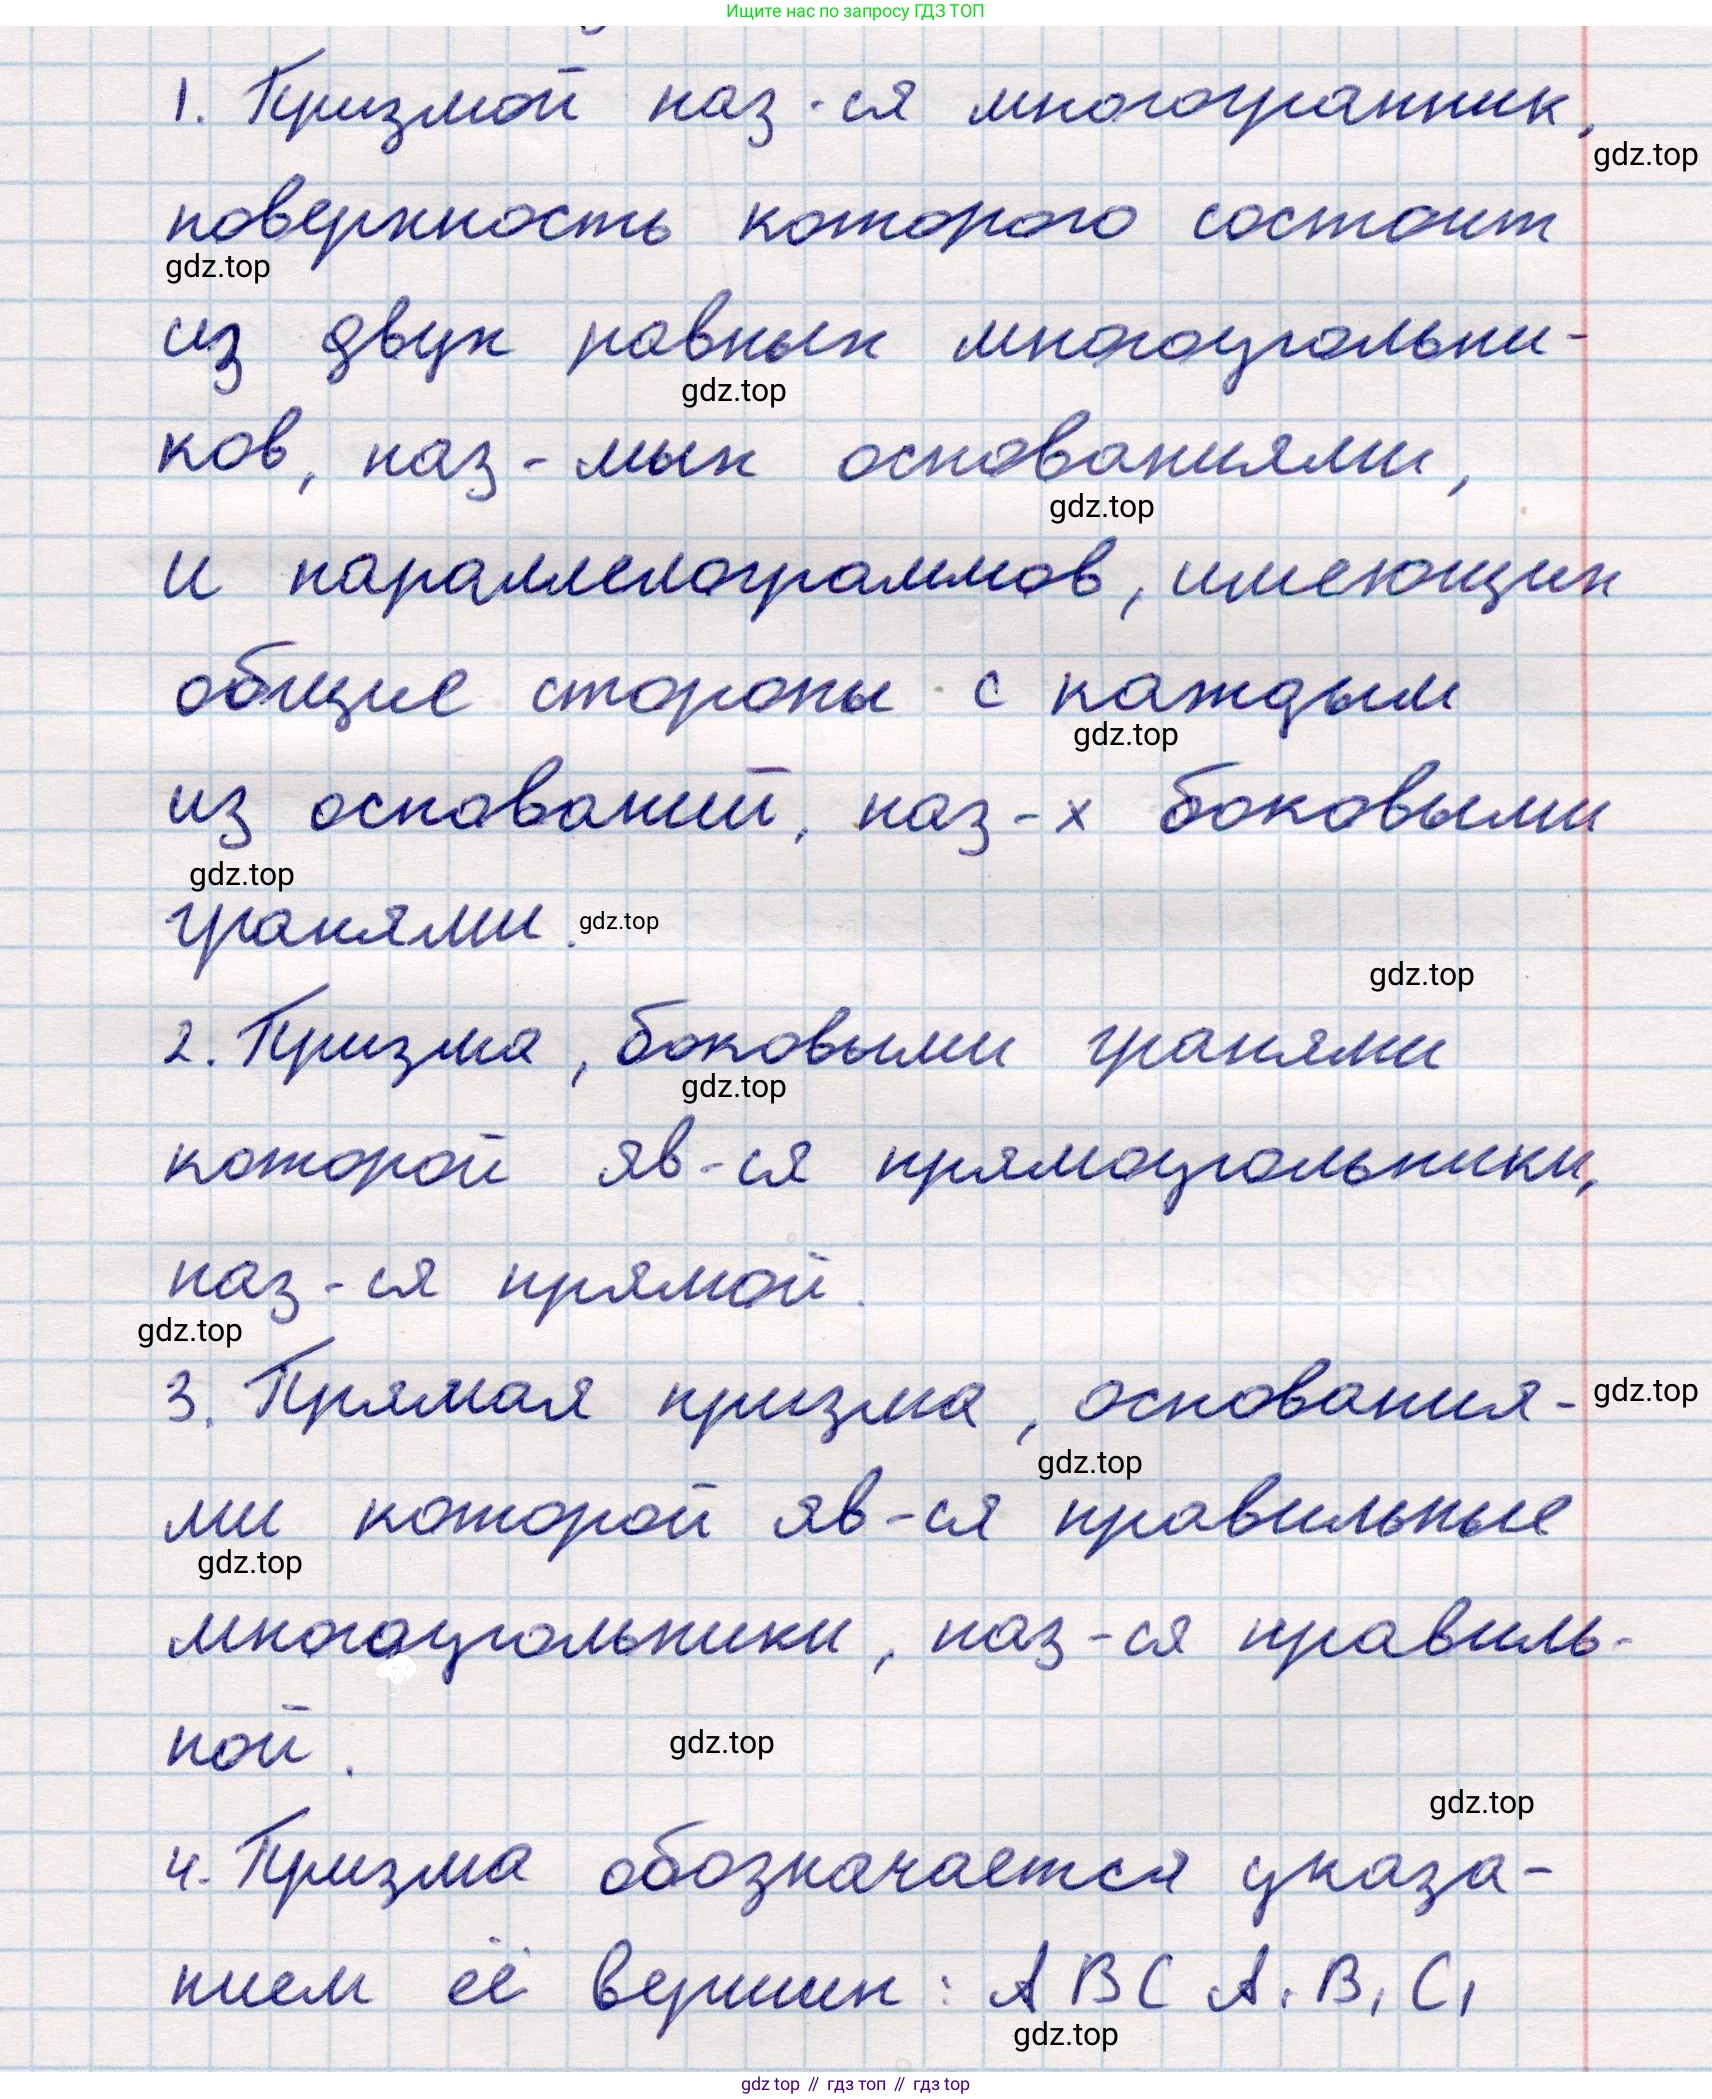 Ищите нас по запросу ГДЗ ТОП
1. Призмой наз-ся многогранник,
gdz.top
поверхность которого состоит
gdz.top
из двух равных многоугольни-
gdz.top
ков, наз-мых основаниями,
gdz.top
и параллелограммов, имеющих
общие стороны с каждым
gdz.top
из оснований, наз-х боковыми
gdz.top
гранями. gdz.top
gdz.top
2. Призма, боковыми гранями
gdz.top
которой яв-ся прямоугольники,
наз-ся прямой.
gdz.top
3. Прямая призма, основания- gdz.top
gdz.top
ми которой яв-ся правильные
gdz.top
многоугольники, наз-ся правиль-
ной. gdz.top
gdz.top
4. Призма обозначается указа-
нием её вершин: ABCA₁B₁C₁
gdz.top
gdz top // гдз топ // гдз top